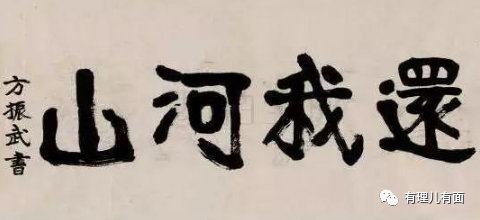 還我河山
方振武書
有理儿有面